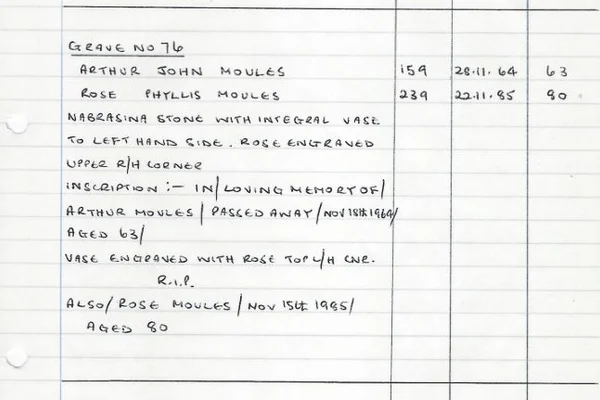 GRAVE NO 76
ARTHUR JOHN MOULES 159 28.11.64 63
ROSE PHYLLIS MOULES 239 22.11.85 80
NABRASINA STONE WITH INTEGRAL VASE
TO LEFT HAND SIDE. ROSE ENGRAVED
UPPER R/H CORNER
INSCRIPTION :- IN/LOVING MEMORY OF/
ARTHUR MOULES/PASSED AWAY/NOV 18th 1964/
AGED 63/
VASE ENGRAVED WITH ROSE TOP L/H CNR.
R.I.P.
ALSO/ROSE MOULES/NOV 15th 1985/
AGED 80